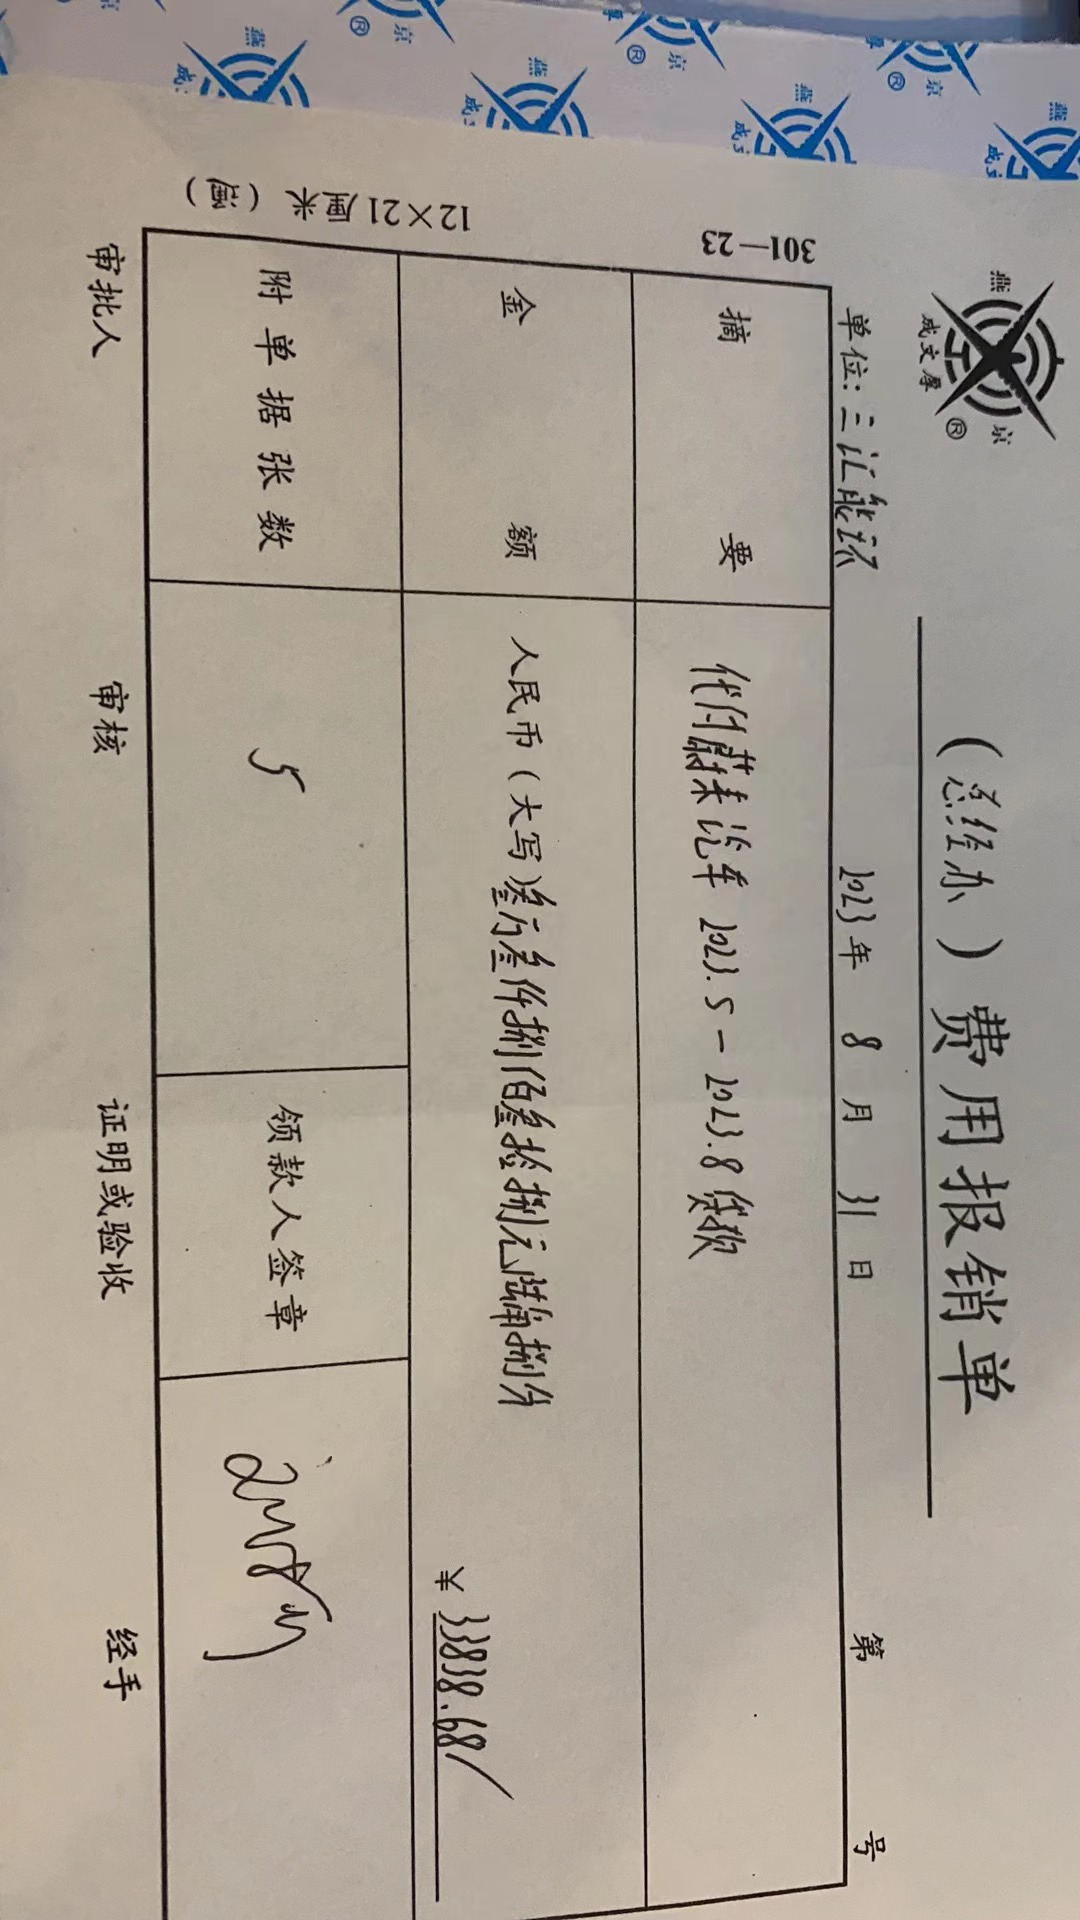 燕京
成文厚
®
（总经办）费用报销单
单位：三汇能环 2023年 8月 31日 第 号
摘要 代付蔚来汽车 2023.5－2023.8贷款
金额 人民币（大写）叁万叁仟捌佰叁拾捌元陆角捌分
¥ 33838.68/
附单据张数 5 领款人签章
审批人 审核 证明或验收 经手
301—23
12×21厘米（通）